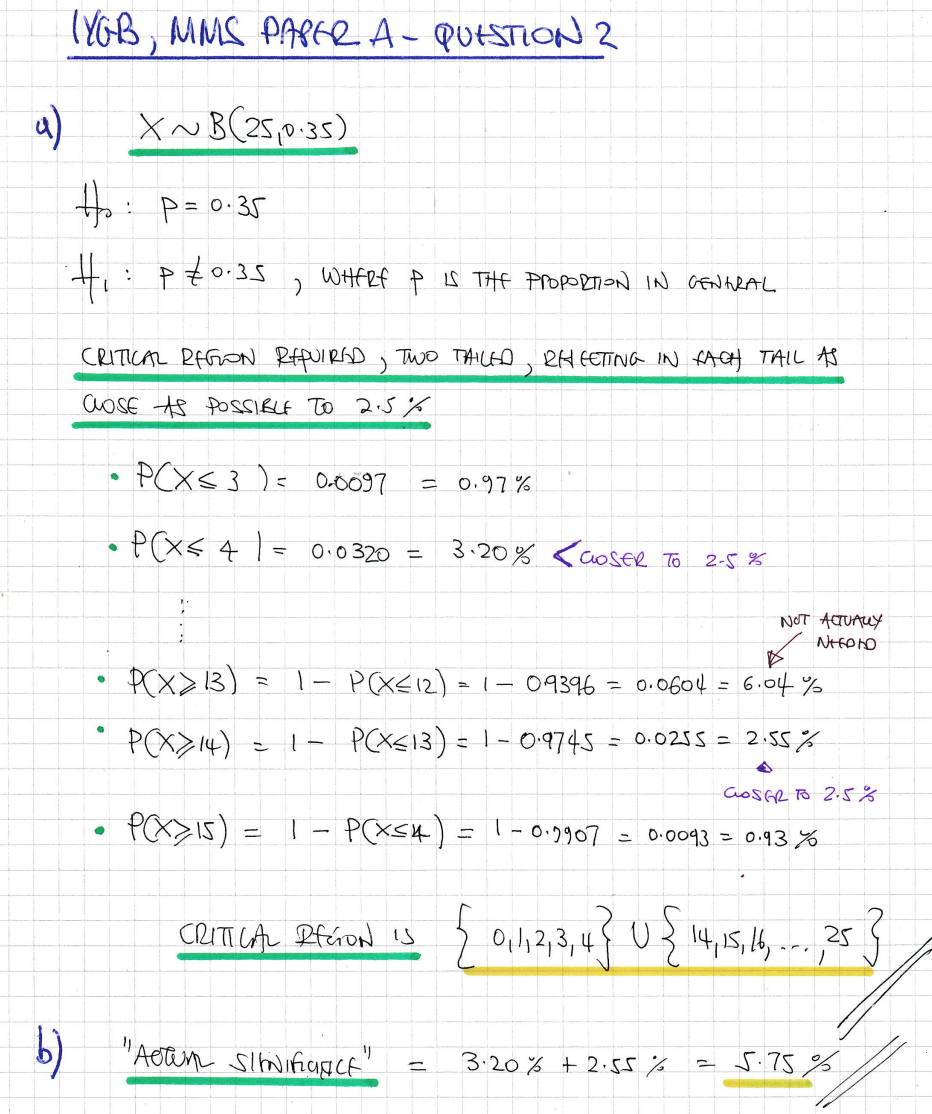 IYGB, MMS PAPER A - QUESTION 2
a) X ~ B(25, 0.35)
H₀ : p = 0.35
H₁ : p ≠ 0.35 , WHERE p IS THE PROPORTION IN GENERAL
CRITICAL REGION REQUIRED, TWO TAILED, REJECTING IN EACH TAIL AS
CLOSE AS POSSIBLE TO 2.5%
• P(X ≤ 3) = 0.0097 = 0.97%
• P(X ≤ 4) = 0.0320 = 3.20% < CLOSER TO 2.5%
NOT ACTUALLY
NEEDED
• P(X ≥ 13) = 1 - P(X ≤ 12) = 1 - 0.9396 = 0.0604 = 6.04%
• P(X ≥ 14) = 1 - P(X ≤ 13) = 1 - 0.9745 = 0.0255 = 2.55%
CLOSER TO 2.5%
• P(X ≥ 15) = 1 - P(X ≤ 14) = 1 - 0.9907 = 0.0093 = 0.93%
CRITICAL REGION IS { 0,1,2,3,4 } ∪ { 14,15,16, ... , 25 }
b) "ACTUAL SIGNIFICANCE" = 3.20% + 2.55% = 5.75%